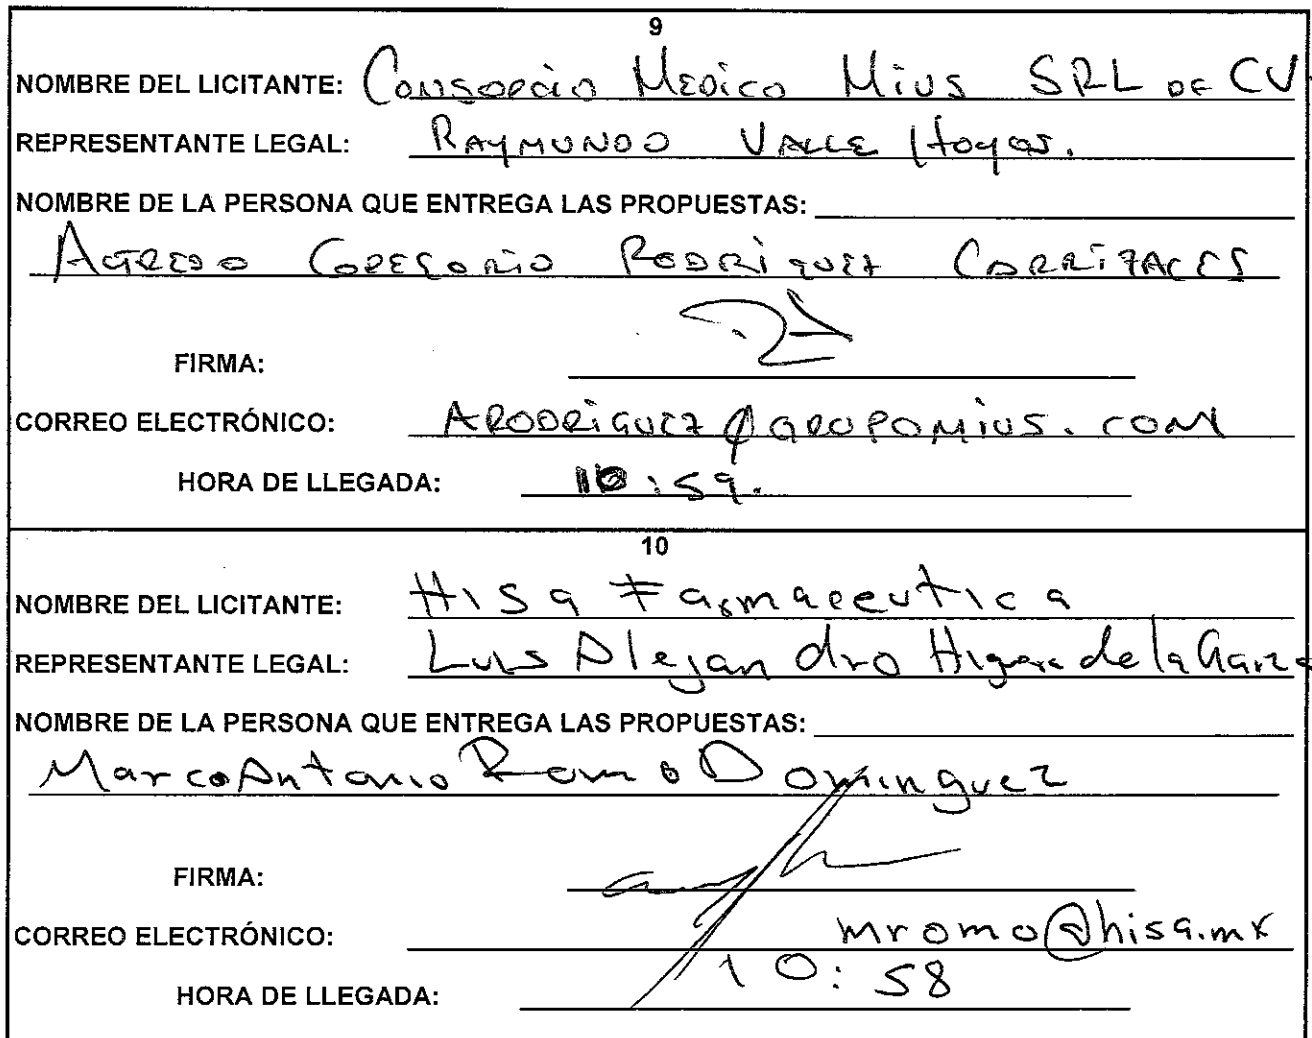 9
NOMBRE DEL LICITANTE: Consorcio Medico Mius SRL DE CV
REPRESENTANTE LEGAL: RAYMUNDO VALLE Hoyos.
NOMBRE DE LA PERSONA QUE ENTREGA LAS PROPUESTAS:
RODRIGUEZ
FIRMA:
CORREO ELECTRÓNICO: ARODRIGUEZ@GRUPOMIUS.COM
HORA DE LLEGADA: 10:59.
10
NOMBRE DEL LICITANTE: Hisa Farmaceutica
REPRESENTANTE LEGAL: Luis Alejandro Higuera de la Garza
NOMBRE DE LA PERSONA QUE ENTREGA LAS PROPUESTAS:
Marco Antonio Romo Dominguez
FIRMA:
CORREO ELECTRÓNICO: mromo@hisa.mx
HORA DE LLEGADA: 10:58